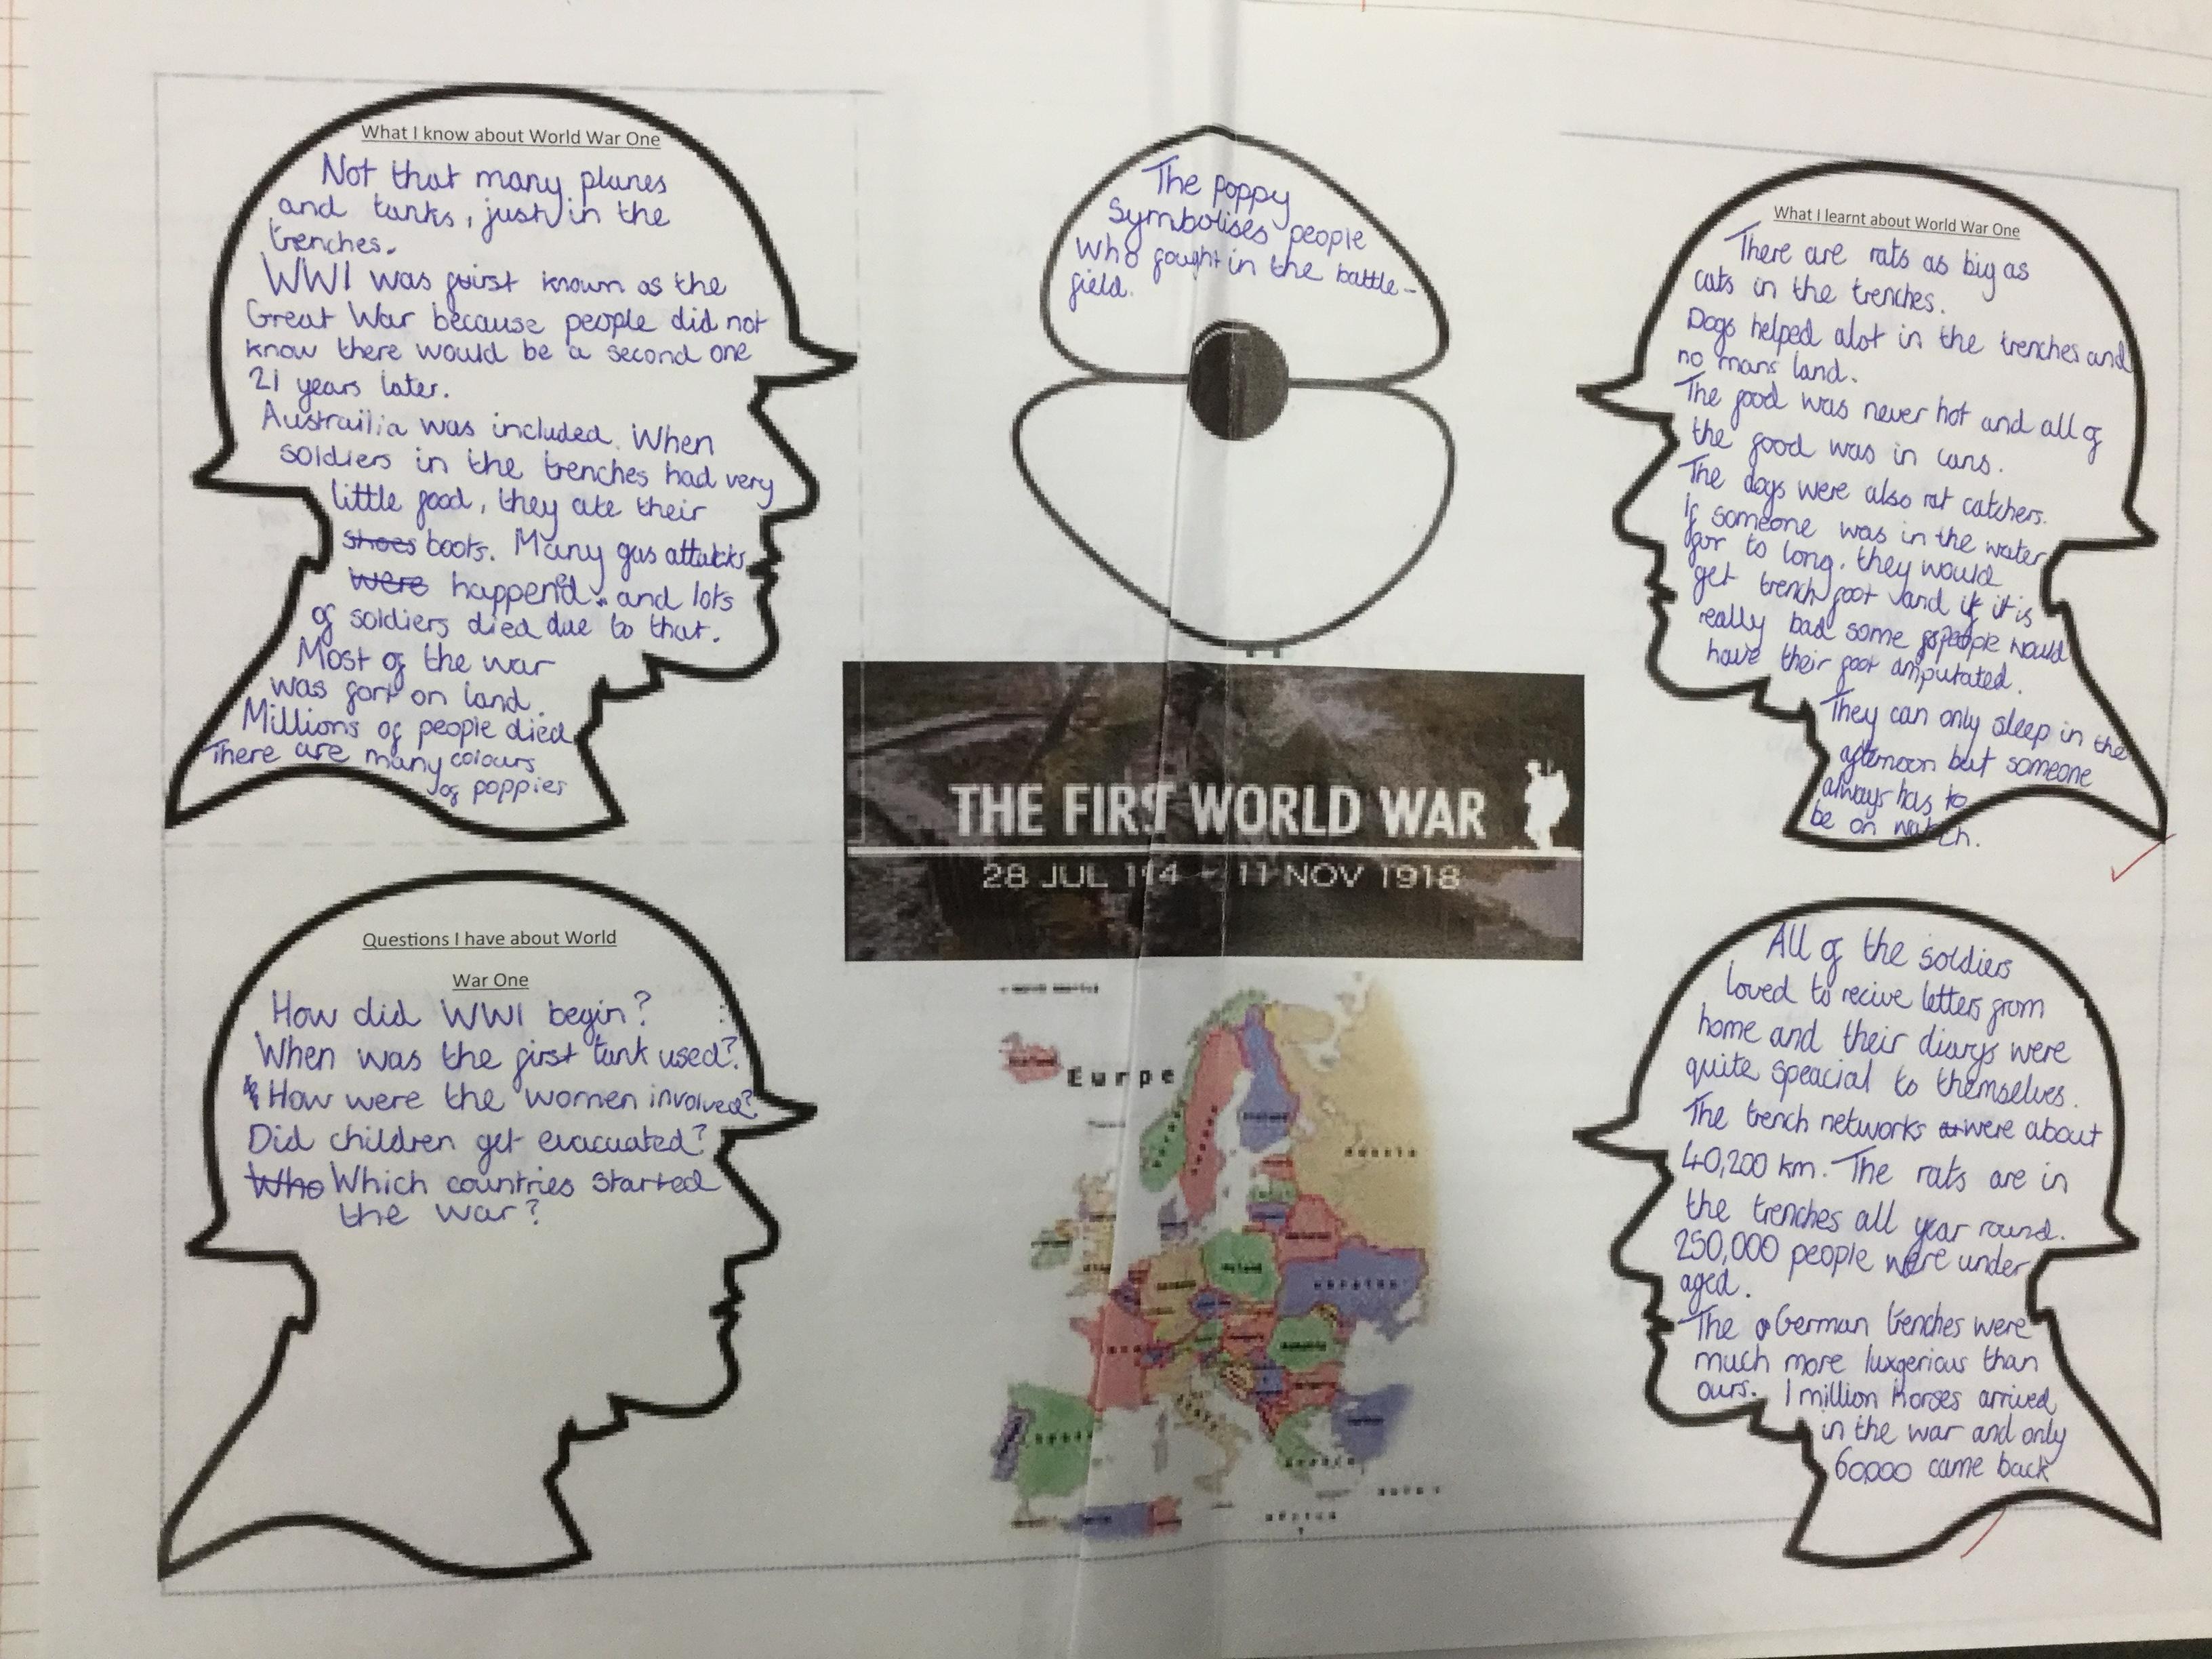 What I know about World War One
Not that many planes
and tanks, just in the
trenches.
WWI was first known as the
Great War because people did not
know there would be a second one
21 years later.
Austrailia was included. When
soldiers in the trenches had very
little food, they ate their
shoes boots. Many gas attacks
were happened. and lots
of soldiers died due to that.
Most of the war
was fort on land.
Millions of people died
There are many colours
of poppies
Questions I have about World
War One
How did WWI begin?
When was the first tank used?
How were the women involved?
Did children get evacuated?
Who Which countries started
the war?
The poppy
symbolises people
who fought in the battle-
field.
THE FIRST WORLD WAR
28 JUL 114 - 11 NOV 1918
Eur pe
What I learnt about World War One
There are rats as big as
cats in the trenches.
Dogs helped alot in the trenches and
no mans land.
The food was never hot and all of
the food was in cans.
The dogs were also rat catchers.
If someone was in the water
for to long, they would
get trench foot and if it is
really bad some people would
have their foot amputated.
They can only sleep in the
afternoon but someone
always has to
be on watch.
All of the soldiers
loved to recive letters from
home and their diarys were
quite speacial to themselves.
The trench networks were about
40,200 km. The rats are in
the trenches all year round.
250,000 people were under
aged.
The German trenches were
much more luxgerious than
ours. 1 million horses arrived
in the war and only
60,000 came back